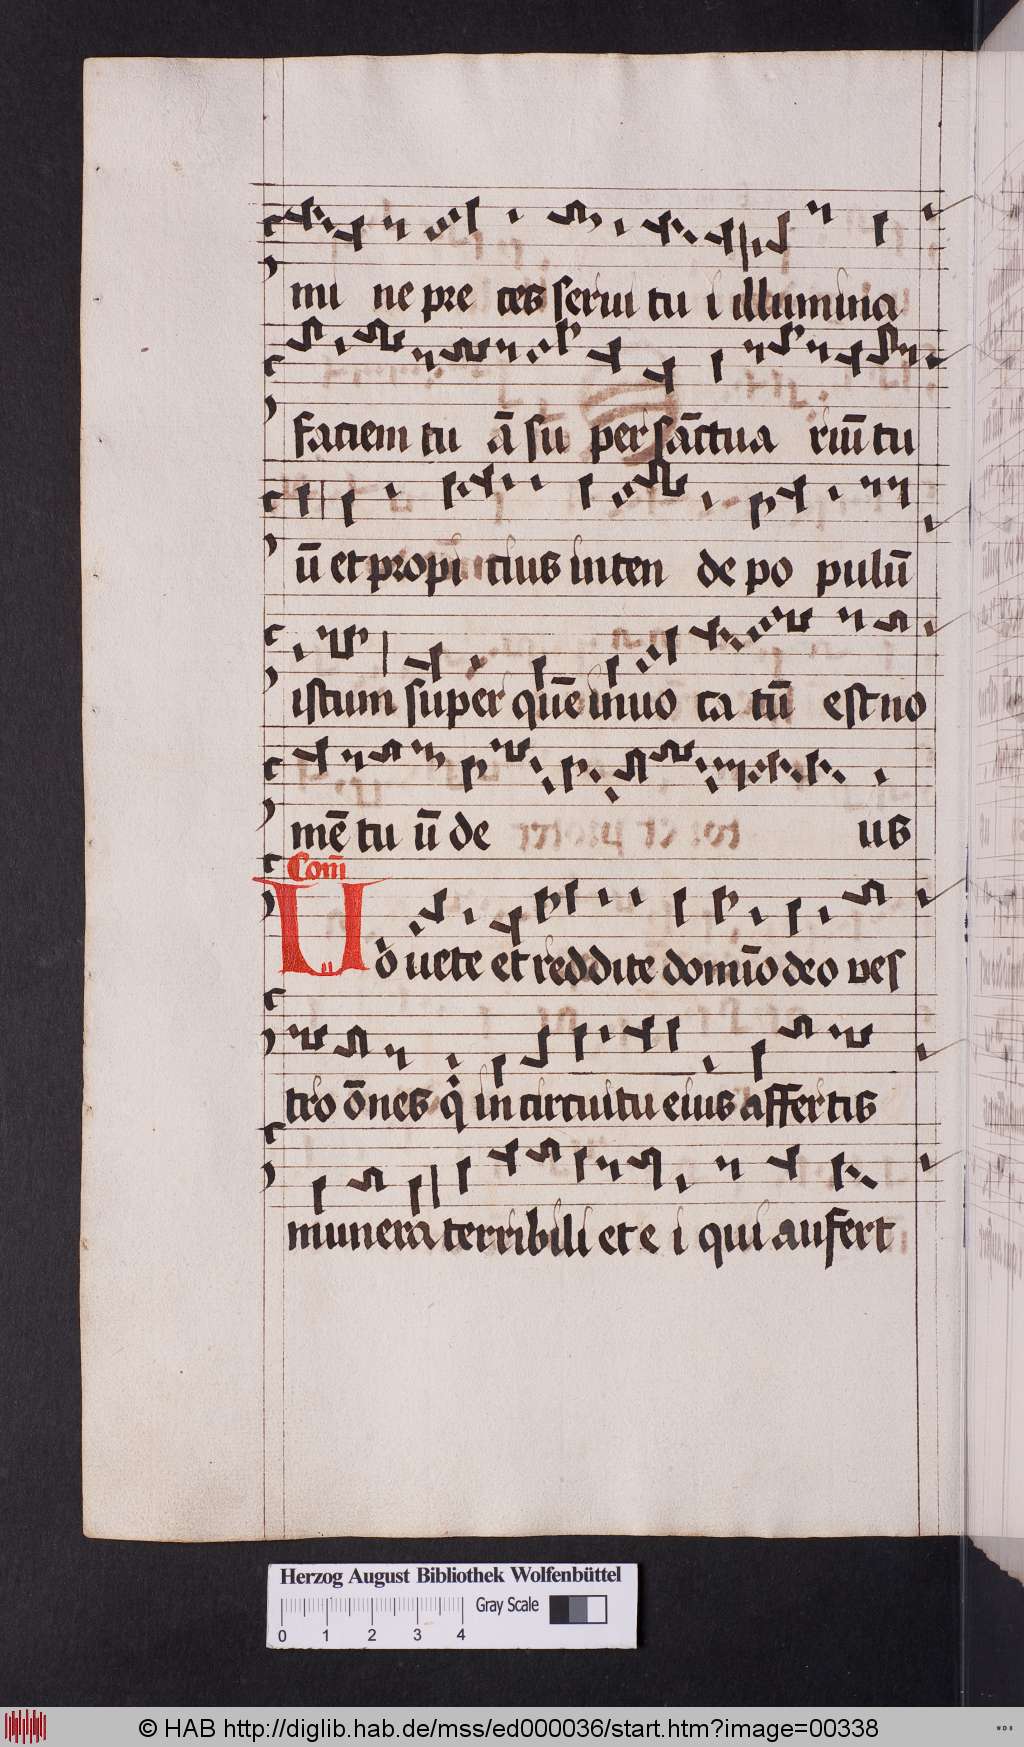 mi ne pre ces serui tu i illumina
faciem tu ā sū per sāctua riū tu
ū et propi cius inten de po pulū
istum super quē inuo ca tū est no
mē tu ū de us
Com̄
Uo uete et reddite domīo deo ves
tro ōnes q̇ in circuitu eius affertis
munera terribili et e i qui aufert
Herzog August Bibliothek Wolfenbüttel
Gray Scale
0 1 2 3 4
© HAB http://diglib.hab.de/mss/ed000036/start.htm?image=00338